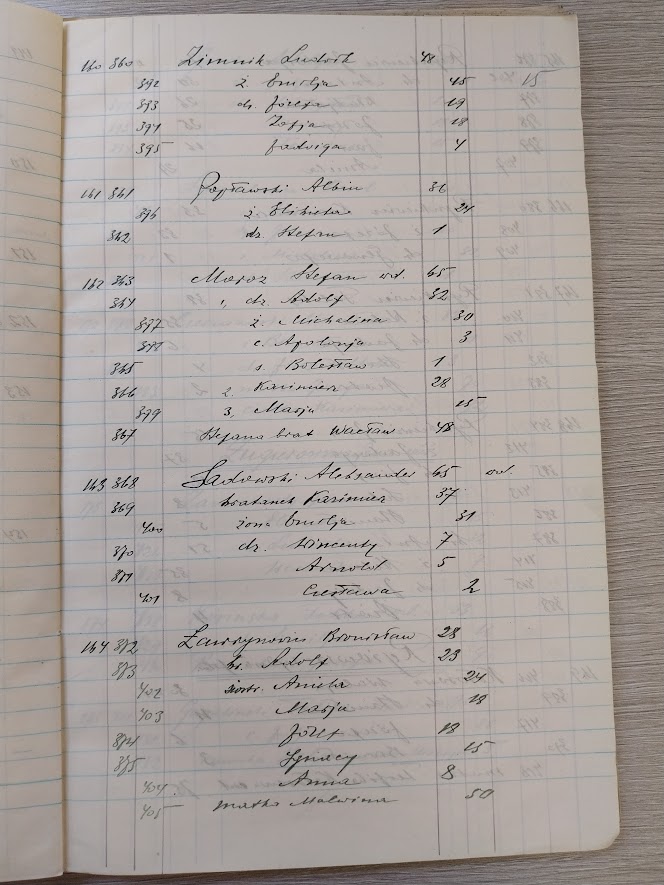 160 360 Zimnik Ludwik 48
392 ż. Emilja 45 15
393 dr. Józefa 19
394 Zofja 18
395 Jadwiga 4
161 361 Popławski Albin 36
396 ż. Elżbieta 24
362 dz. Stefan 1
162 363 Moroz Stefan wd. 65
364 1, dz. Adolf 32
397 ż. Michalina 30
398 c. Apolonja 3
365 s. Bolesław 1
366 2. Kazimierz 28
399 3, Marja 15
367 Stefana brat Wacław 48
163 368 Sadowski Aleksander 65 wd.
369 bratanek Kazimierz 37
400 żona Emilja 31
370 dz. Wincenty 7
371 Arnold 5
401 Czesława 2
164 372 Ławrynowicz Bronisław 28
373 br. Adolf 23
402 siostr. Aniela 24
403 Marja 18
374 Józef 18
375 Ignacy 15
404. Anna 8
405 matka Malwina 50